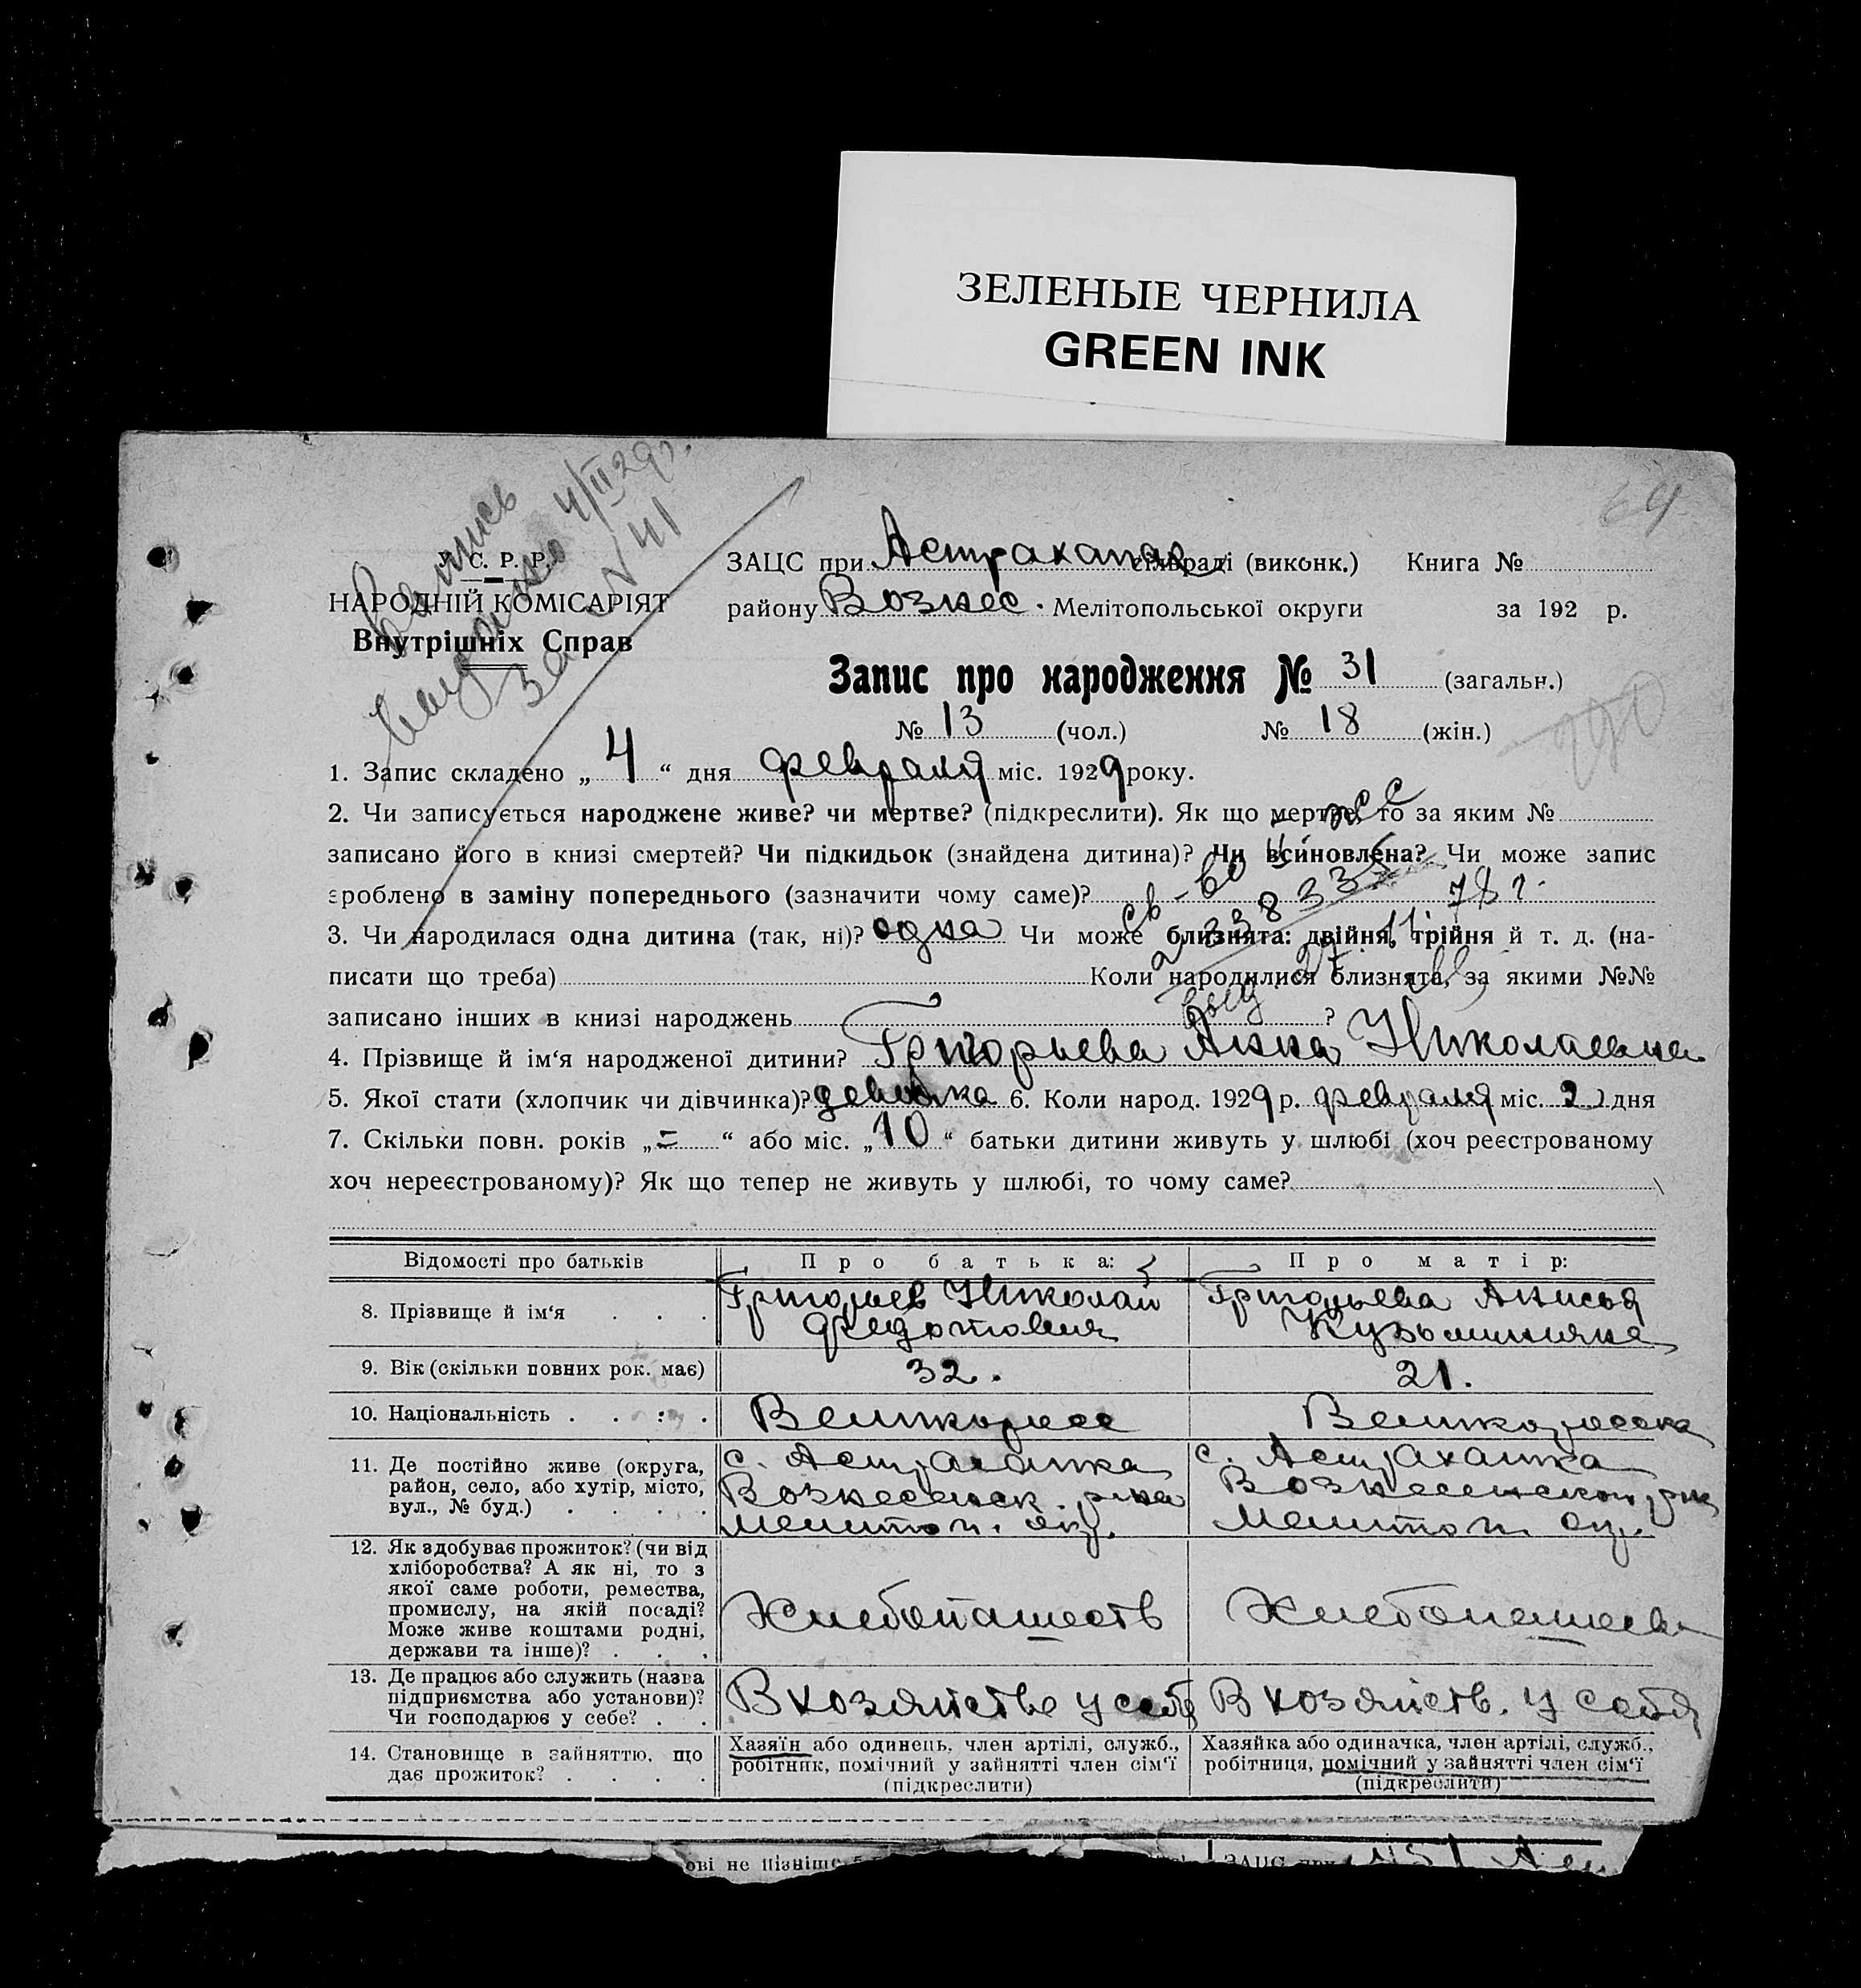 ЗЕЛЕНЫЕ ЧЕРНИЛА
GREEN INK
64
Выпись
выдано 4/II 29 г.
за N 41
У. С. Р. Р.
НАРОДНІЙ КОМІСАРІЯТ
Внутрішніх Справ
ЗАЦС при Астраханке сільраді (виконк.) Книга №
району Вознес. Мелітопольської округи за 192 р.
Запис про народження № 31 (загальн.)
№ 13 (чол.) № 18 (жін.)
1. Запис складено „ 4 “ дня февраля міс. 1929 року.
2. Чи записується народжене живе? чи мертве? (підкреслити). Як що мертве, то за яким №
записано його в книзі смертей? Чи підкидьок (знайдена дитина)? Чи всиновлена? Чи може запис
зроблено в заміну попереднього (зазначити чому саме)?
св-во
238335
78 г.
3. Чи народилася одна дитина (так, ні)? одна Чи може близнята: двійня, трійня й т. д. (на-
писати що треба) Коли народилися близнята, за якими №№
записано інших в книзі народжень ?
4. Прізвище й ім‘я народженої дитини? Григорьева Анна Николаевна
5. Якої стати (хлопчик чи дівчинка)? девочка 6. Коли народ. 1929 р. февраля міс. 2 дня
7. Скільки повн. років „ = “ або міс. „ 10 “ батьки дитини живуть у шлюбі (хоч реєстрованому
хоч нереєстрованому)? Як що тепер не живуть у шлюбі, то чому саме?
Відомості про батьків Про батька: Про матір:
8. Прізвище й ім‘я . . . Григорьев Николай Григорьева Анисья
Федотович Кузьминична
9. Вік (скільки повних рок. має) 32. 21.
10. Національність . . . . Великоросс Великоросска
11. Де постійно живе (округа, район, село, або хутір, місто, вул., № буд.) . . . .
с. Астраханка с. Астраханка
Вознесенск. р-на Вознесенского р-на
Мелитоп. окр. Мелитоп. окр.
12. Як здобуває прожиток? (чи від
хліборобства? А як ні, то з
якої саме роботи, ремества,
промислу, на якій посаді?
Може живе коштами родні,
держави та інше)? . . .
Хлебопашеств Хлебопашеств
13. Де працює або служить (назва
підприємства або установи)?
Чи господарює у себе? . .
В хозяйстве у себя В хозяйств. у себя
14. Становище в зайняттю, що
дає прожиток? . . . .
Хазяїн або одинець, член артілі, служб.,
робітник, помічний у зайнятті член сім‘ї
(підкреслити)
Хазяйка або одиначка, член артілі, служб.,
робітниця, помічний у зайнятті член сім‘ї
(підкреслити)
ові не пізніше
ЗАЦС при